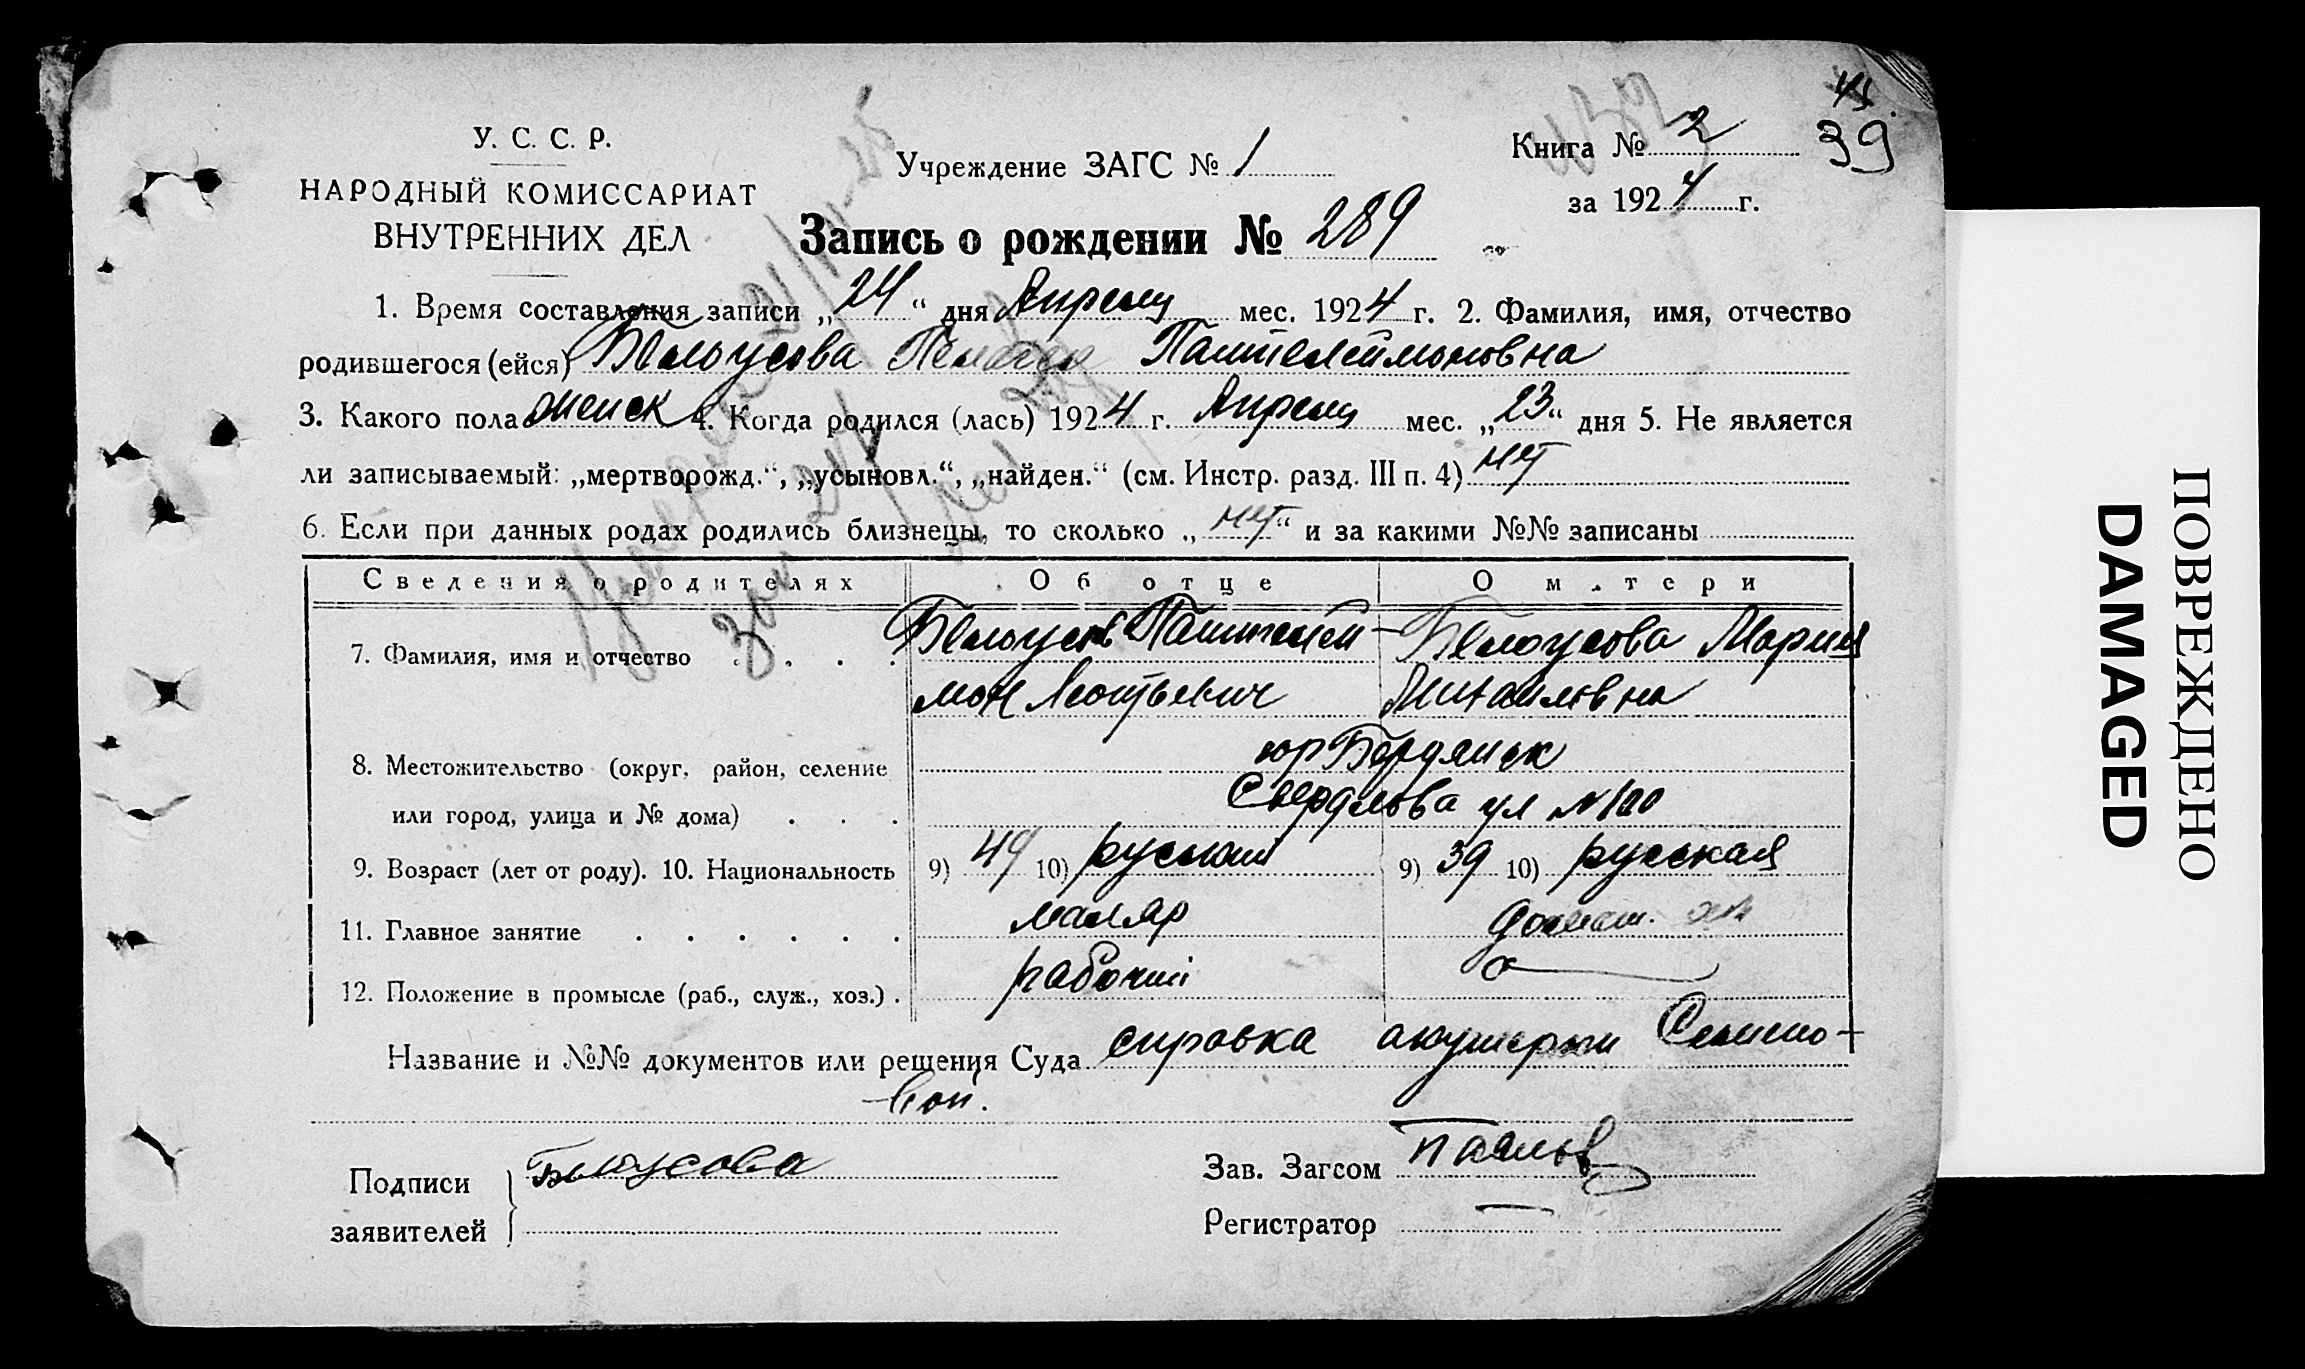 45.
39
У. С. С. Р.
НАРОДНЫЙ КОМИССАРИАТ
ВНУТРЕННИХ ДЕЛ
Учреждение ЗАГС № 1
Книга № 2
за 1924 г.
Запись о рождении № 289
1. Время составления записи „24“ дня Апреля мес. 1924 г. 2. Фамилия, имя, отчество
родившегося (ейся) Белоусова Пелагея Пантелеймоновна
3. Какого пола женск 4. Когда родился (лась) 1924 г. Апреля мес. „23“ дня 5. Не является
ли записываемый: „мертворожд.“, „усыновл.“, „найден.“ (см. Инстр. разд. III п. 4) нет
6. Если при данных родах родились близнецы, то сколько „нет“ и за какими №№ записаны
Сведения о родителях Об отце О матери
7. Фамилия, имя и отчество Белоусов Пантелей- Белоусова Мария
мон Леонтьевич Михайловна
8. Местожительство (округ, район, селение гор Бердянск
или город, улица и № дома) Свердлова ул № 100
9. Возраст (лет от роду). 10. Национальность 9) 49 10) русский 9) 39 10) русская
11. Главное занятие маляр домаш.
12. Положение в промысле (раб., служ., хоз.) рабочий
Название и №№ документов или решения Суда справка акушерки
-вой.
Подписи Белоусова Зав. Загсом Павлов
заявителей Регистратор
ПОВРЕЖДЕНО
DAMAGED